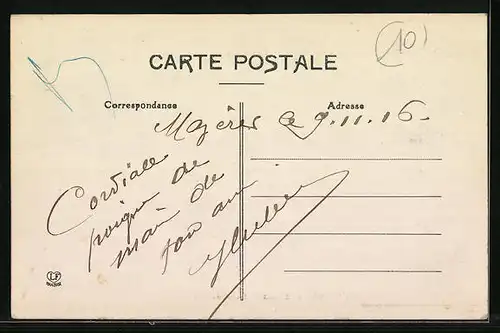 (10)
CARTE POSTALE
Correspondance
Adresse
le 9.11.16.
Cordiale
poignée de
main de
ton ami
LF